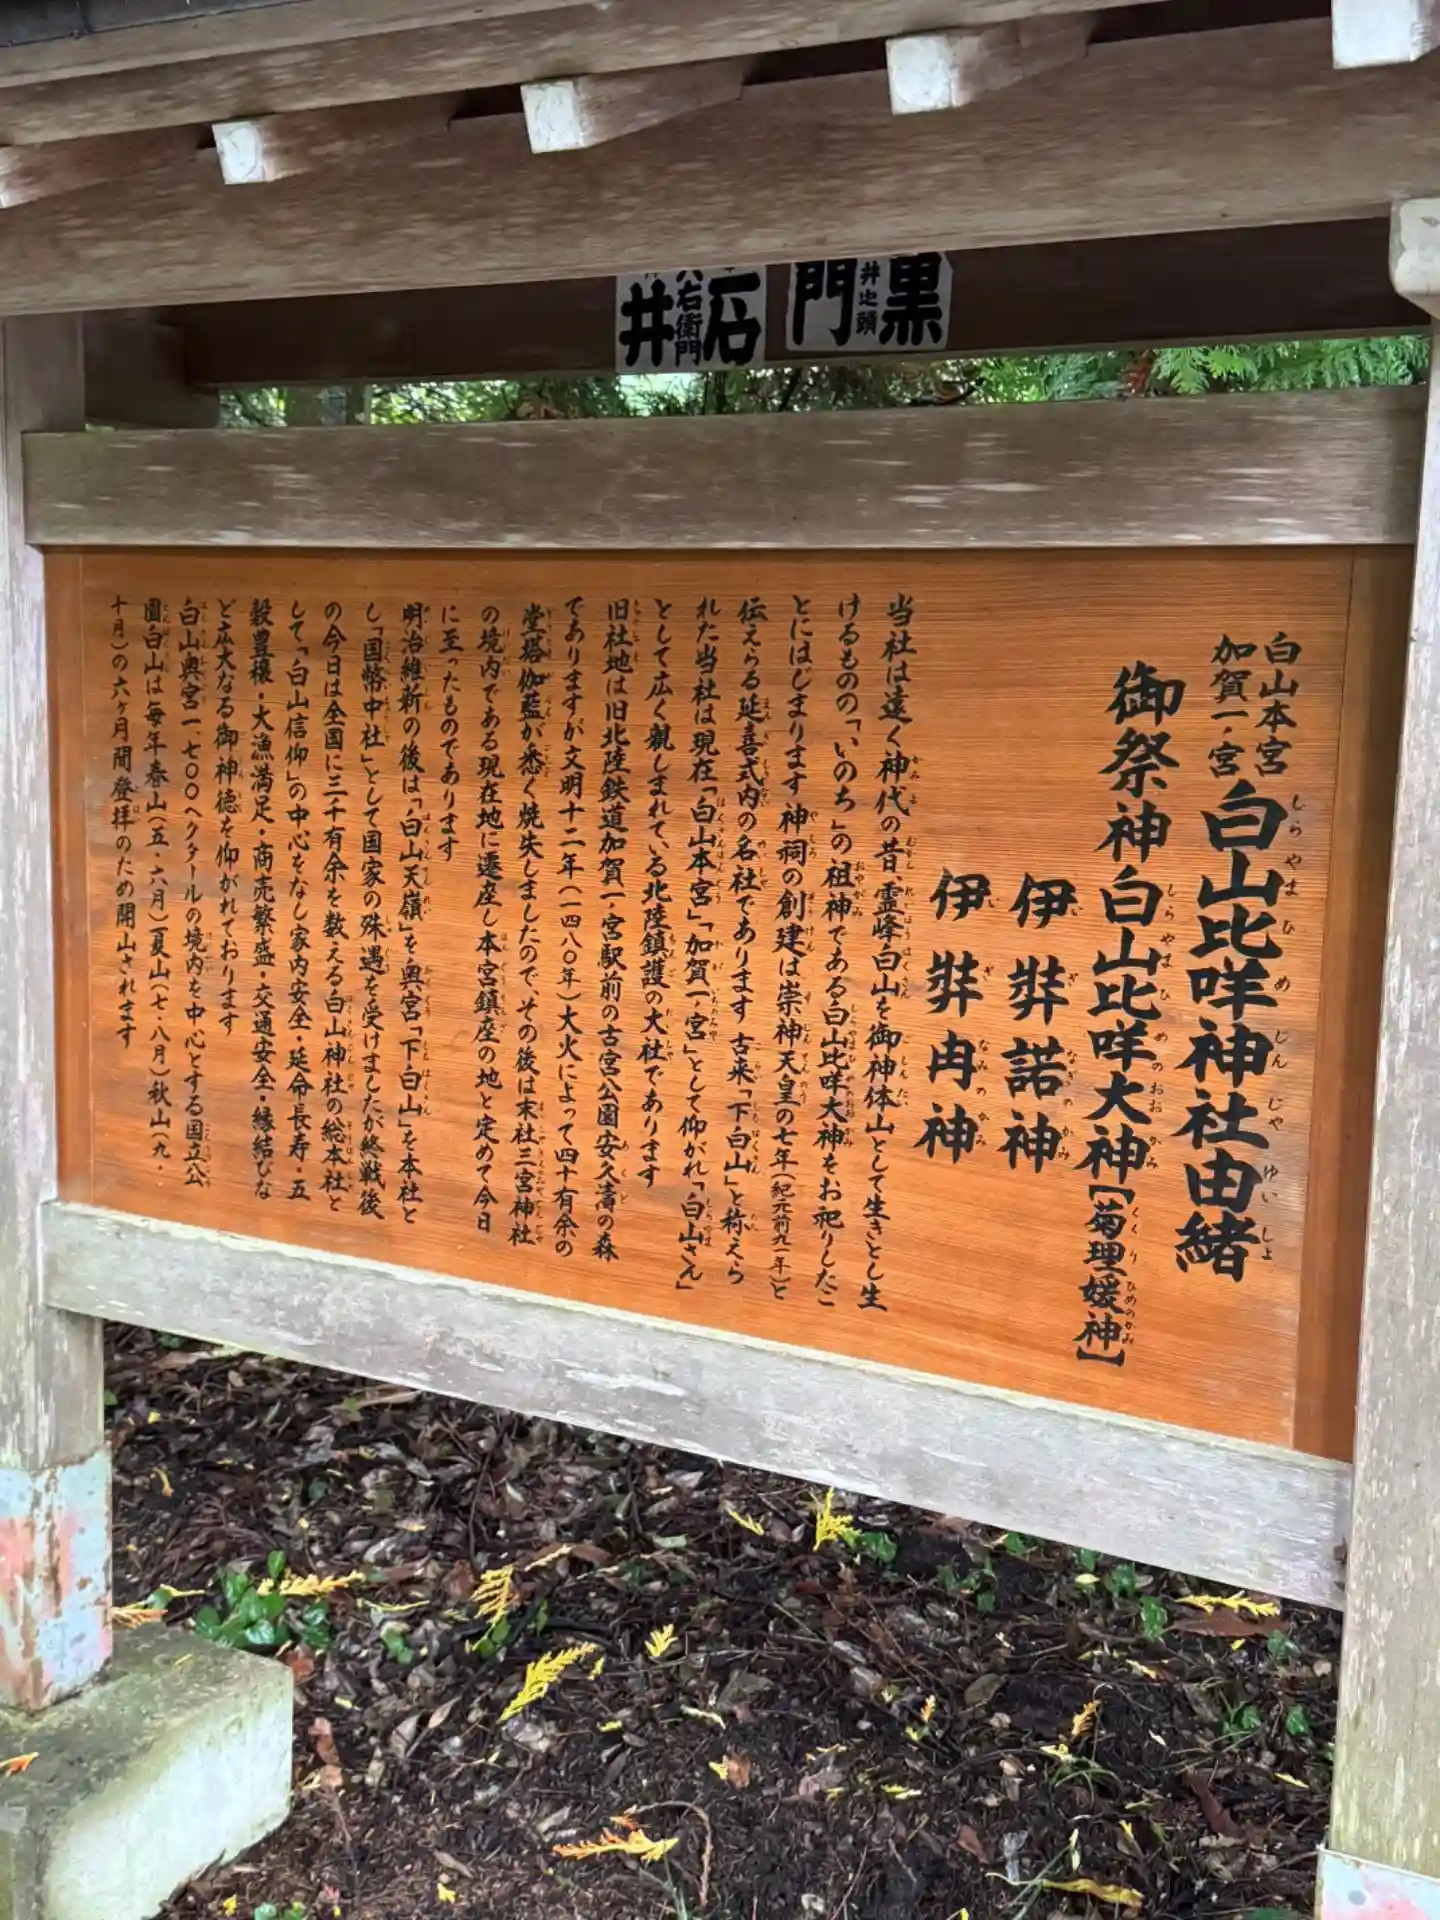 黒
井之頭
門
石
右衛門
井
白山本宮
加賀一ノ宮
白山比咩神社由緒
しらやまひめじんじゃゆいしょ
御祭神白山比咩大神【菊理媛神】
しらやまひめのおおかみ くくりひめのかみ
伊弉諾神
いざなぎのかみ
伊弉冉神
いざなみのかみ
当社は遠く神代の昔、霊峰白山を御神体山として生きとし生
けるものの「いのち」の祖神である白山比咩大神をお祀りしたこ
とにはじまります 神祠の創建は崇神天皇の七年(紀元前九一年)と
伝えらる延喜式内の名社であります 古来「下白山」と称えら
れた当社は現在「白山本宮」「加賀一ノ宮」として仰がれ「白山さん」
として広く親しまれている北陸鎮護の大社であります
旧社地は旧北陸鉄道加賀一ノ宮駅前の古宮公園安久濤の森
でありますが文明十二年(一四八〇年)大火によって四十有余の
堂塔伽藍が悉く焼失しましたので、その後は末社三宮神社
の境内である現在地に遷座し本宮鎮座の地と定めて今日
に至ったものであります
明治維新の後は「白山天嶺」を奥宮「下白山」を本社と
し「国幣中社」として国家の殊遇を受けましたが終戦後
の今日は全国に三千有余を数える白山神社の総本社と
して「白山信仰」の中心をなし家内安全・延命長寿・五
穀豊穣・大漁満足・商売繁盛・交通安全・縁結びな
ど広大なる御神徳を仰がれております
白山奥宮一、七〇〇ヘクタールの境内を中心とする国立公
園白山は毎年春山(五・六月)夏山(七・八月)秋山(九・
十月)の六ヶ月間登拝のため開山されます